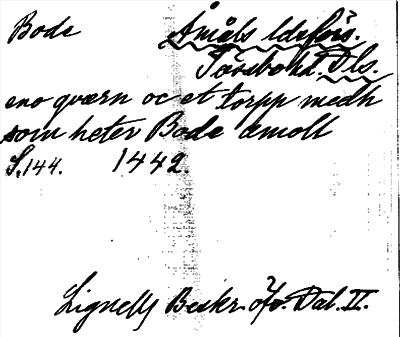 Bode Åmåls ldsförs.
Tössbohd. Dls.
eno qværn oc et torpp medh
som heter Bode amoll
S. 144. 1442.
Lignells Beskr. öfv. Dal. II.